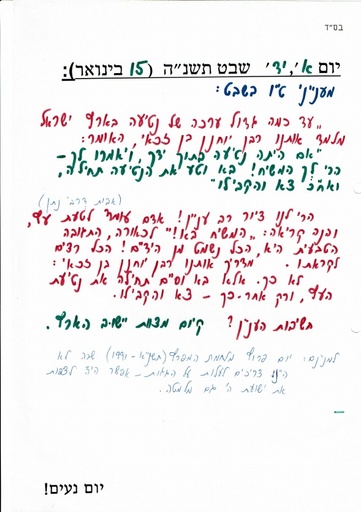 בס״ד
יום א׳, יד׳ שבט תשנ״ה (15 בינואר):
מענייני ט״ו בשבט:
"עד כמה גדול ערכה של נטיעה בארץ ישראל
מלמד אותנו רבן יוחנן בן זכאי, האומר:
"אם היתה נטיעה בתוך ידך, ויאמרו לך -
הרי לך המשיח! בא וטע את הנטיעה תחילה,
ואח״כ צא והקבילו"
(אבות דרבי נתן)
הרי לנו ציור רב ענין! אדם עומד לטעת עץ,
ובנה קריאה: "המשיח בא!" לכאורה, התגובה
הטבעית היא, הכל נשמט מן הידים! הכל רצים
לקראתו. מדריך אותנו רבן יוחנן בן זכאי:
לא כך. אלא בא וסיים תחילה את נטיעת
העץ, ורק אחר-כך - צא והקבילו.
חשיבות הענין? קיום מצות יישוב הארץ.
יום פרוץ מלחמת המפרץ (תשנ״א - 1991) שבה לא
היינו צריכים לעלות על הגגות - אפשר היה לצפות
את ישועת ה׳ גם מלמטה.
יום נעים!